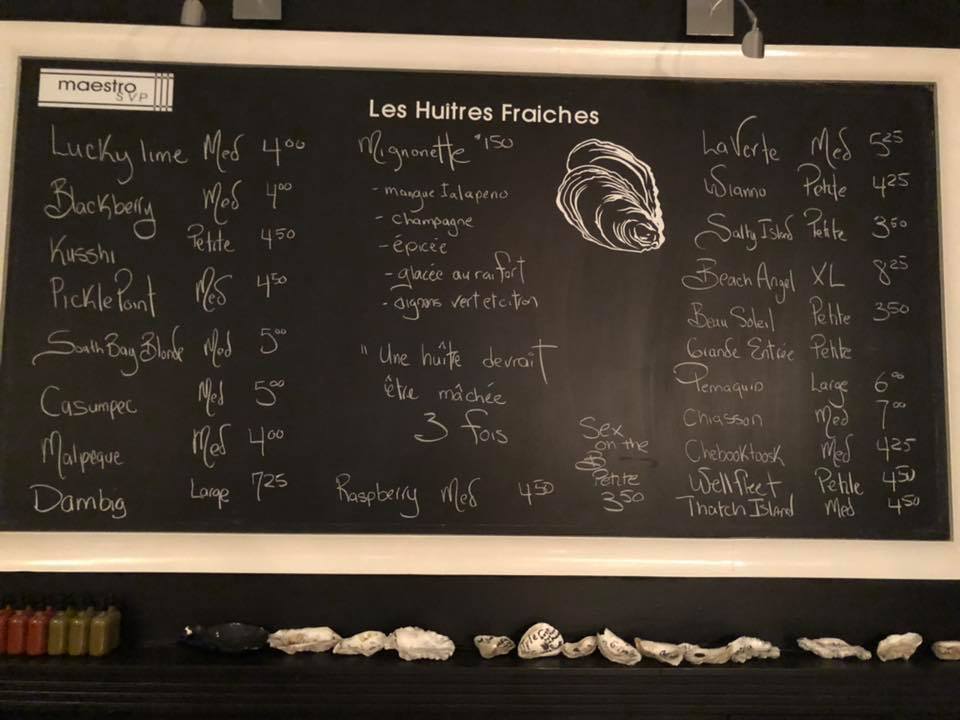 maestro
SVP
Les Huîtres Fraîches
Lucky lime Med 4.00
Blackberry Med 4.00
Kusshi Petite 4.50
Pickle Point Med 4.50
South Bay Blonde Med 5.00
Casumpec Med 5.00
Malpeque Med 4.00
Dambig Large 7.25
Mignonette $1.50
- mangue Jalapeno
- champagne
- épicée
- glacée au raifort
- oignons vert et citron
"Une huître devrait
être mâchée
3 fois
Raspberry Med 4.50
Sex
on the
Petite
3.50
La Verte Med 5.25
Wianno Petite 4.25
Salty Island Petite 3.50
Beach Angel XL 8.25
Beau Soleil Petite 3.50
Grande Entrée Petite
Pemaquid Large 6.00
Chiasson Med 7.00
Chebooktoosk Med 4.25
Wellfleet Petite 4.50
Thatch Island Med 4.50